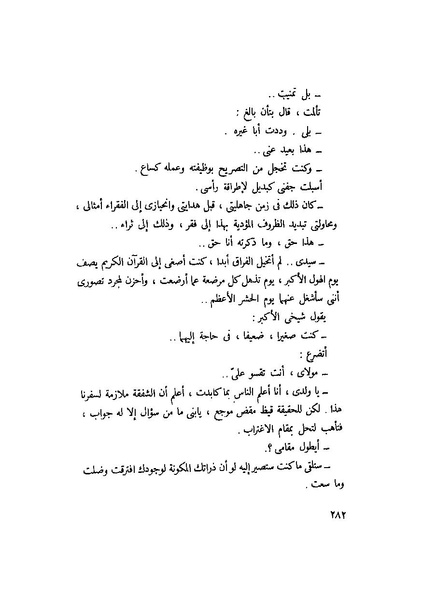 ــ بل تمنيت ..
تألمت ، قال بتأن بالغ :
ــ بلى . وددت أبا غيره .
ــ هذا بعيد عنى ..
ــ وكنت تخجل من التصريح بوظيفته وعمله كساع .
أسبلت جفنى كبديل لإطراقة رأسى .
ــ كان ذلك فى زمن جاهليتى ، قبل هدايتى وانحيازى إلى الفقراء أمثالى ،
ومحاولتى تبديد الظروف المؤدية بهذا إلى فقر ، وذلك إلى ثراء ..
ــ هذا حق ، وما ذكرته أنا حق ..
ــ سيدى .. لم أتخيل الفراق أبدا ، كنت أصغى إلى القرآن الكريم يصف
يوم الهول الأكبر ، يوم تذهل كل مرضعة عما أرضعت ، وأحزن لمجرد تصورى
أننى سأشغل عنهما يوم الحشر الأعظم ..
يقول شيخى الأكبر :
ــ كنت صغيرا ، ضعيفا ، فى حاجة إليهما ..
أتضرع :
ــ مولاى ، أنت تقسو علىّ ..
ــ يا ولدى ، أنا أعلم الناس بما كابدت ، أعلم أن الشفقة ملازمة لسفرنا
هذا . لكن للحقيقة قيظ مقض موجع ، يابنى ما من سؤال إلا له جواب ،
فتأهب لتحل بمقام الاغتراب .
ــ أيطول مقامى ؟.
ــ ستلقى ما كنت ستصير إليه لو أن ذراتك المكونة لوجودك افترقت وضلت
وما سعت .
٢٨٢